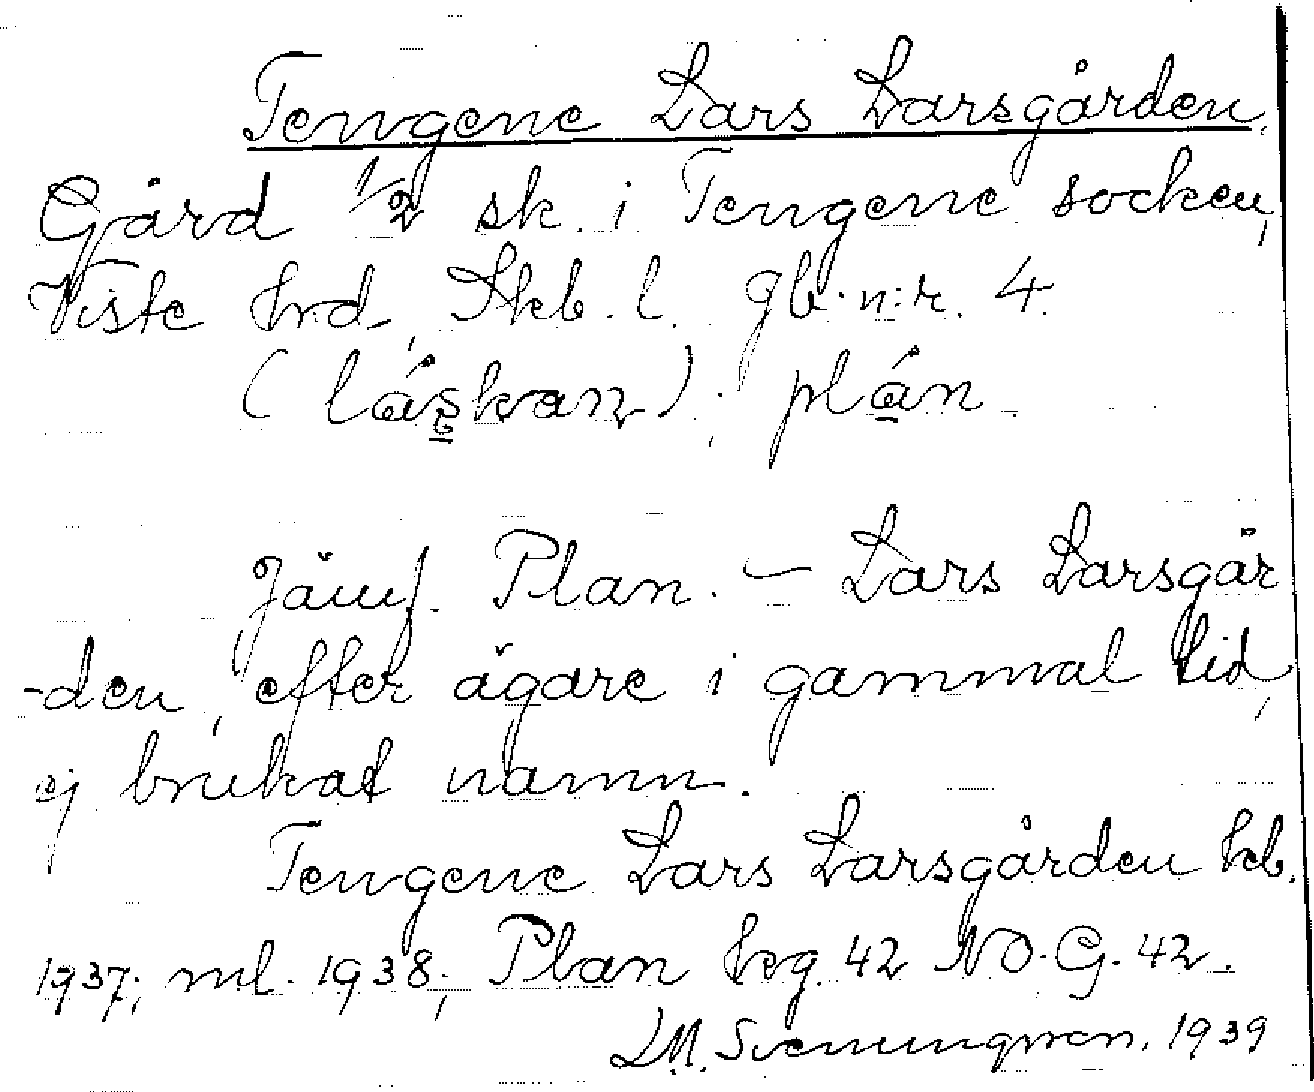 Tengene Lars Larsgården.
Gård 1/2 sk. i Tengene socken,
Viste hrd, Skb. l. gb. n:r. 4.
(láskan); plán.
Jämf. Plan. – Lars Larsgår
-den, efter ägare i gammal tid,
ej brukat namn.
Tengene Lars Larsgården kb.
1937; ml. 1938; Plan hvg. 42 NO. G. 42.
LM. Svenungsson. 1939